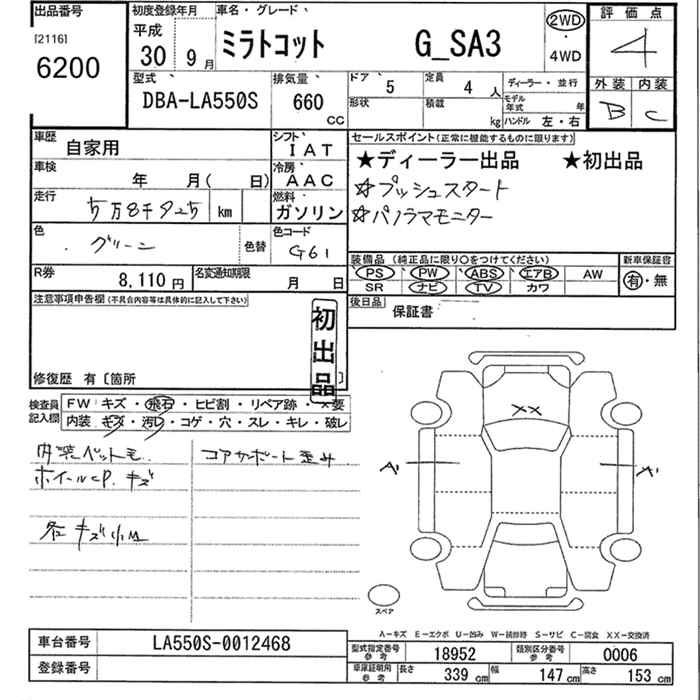 出品番号
[2116]
6200
初度登録年月
平成
30 9月
車名・グレード
ミラトコット G_SA3
2WD
・
4WD
評価点
4
型式
DBA-LA550S
排気量
660
CC
ドア 5
形状
定員 4 人
積載 kg
ディーラー・並行
モデル年式 年
ハンドル 左・右
外装 内装
B C
車歴 自家用
シフト IAT
車検 年 月( 日)
冷房 AAC
走行 5万8千925 km
燃料 ガソリン
色 グリーン 色替
色コード G61
R券 8,110円
名変通知期限 月 日
セールスポイント(正常に機能するものに限ります)
★ディーラー出品 ★初出品
☆プッシュスタート
☆パノラマモニター
装備品(純正品に限り○をつけてください)
新車保証書
PS PW ABS エアB AW
SR ナビ TV カワ
有・無
後日品 保証書
注意事項申告欄(不具合内容等は具体的に記入して下さい)
初出品
修復歴 有〔箇所 〕
検査員記入欄
FW キズ・飛石・ヒビ割・リペア跡・×要
内装・キズ・汚レ・コゲ・穴・スレ・キレ・破レ
内装ペット毛
コアサポート歪み
ホイールCP. キズ
各キズ小凹
XX
A' A'
スペア
A―キズ E―エクボ U―凹み W―補修跡 S―サビ C―腐食 XX―交換済
車台番号 LA550S-0012468
登録番号
型式指定番号参考 18952
類別区分番号参考 0006
車庫証明用参考
長さ 339 cm
幅 147 cm
高さ 153 cm